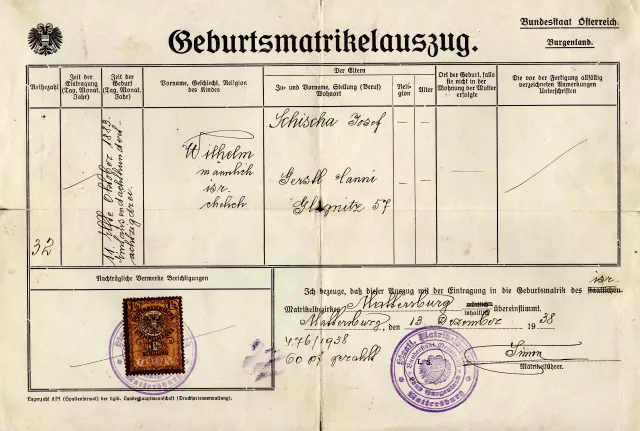 Bundesstaat Österreich.
Burgenland.
Geburtsmatrikelauszug.
Reihezahl
Zeit der Eintragung (Tag, Monat, Jahr)
Zeit der Geburt (Tag, Monat, Jahr)
Vorname, Geschlecht, Religion des Kindes
Der Eltern
Zu- und Vorname, Stellung (Beruf) Wohnort
Religion
Alter
Ort der Geburt, falls sie nicht in der Wohnung der Mutter erfolgte
Die vor der Fertigung allfällig verzeichneten Anmerkungen Unterschriften
32
11. Elfte Oktober 1883.
achtzigdrei
Wilhelm
männlich
isr.
ehelich
Schischa Josef
Gerstl Hanni
57
Nachträgliche Vermerke Berichtigungen
SCHILLING
Ich bezeuge, daß dieser Auszug mit der Eintragung in die Geburtsmatrik des staatlichen isr.
Matrikelbezirkes Mattersburg wörtlich inhaltlich übereinstimmt.
Mattersburg, den 13 Dezember 1938
476/1938
60 gezahlt
L. S.
Matrikelführer.
Mattersburg